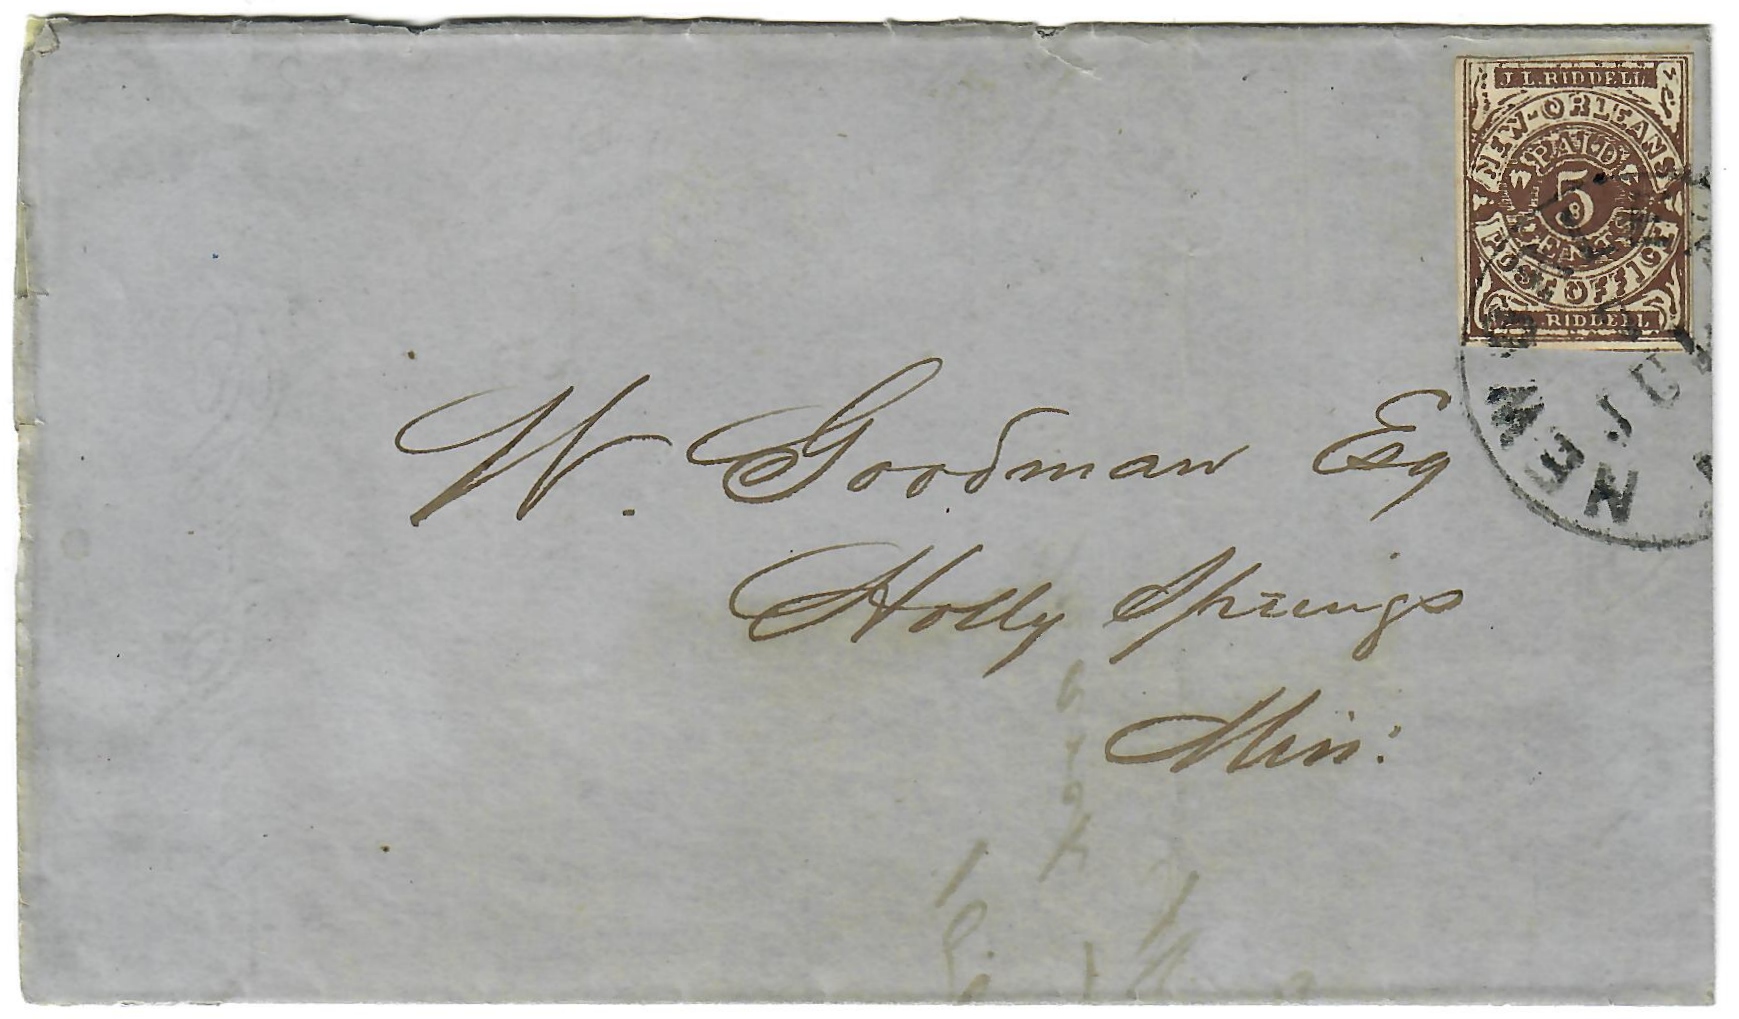 J. L. RIDDELL
NEW-ORLEANS
PAID
5
CENTS
POST OFFICE
RIDDELL
NEW
JUL
W. Goodman Esq
Holly Springs
Miss: